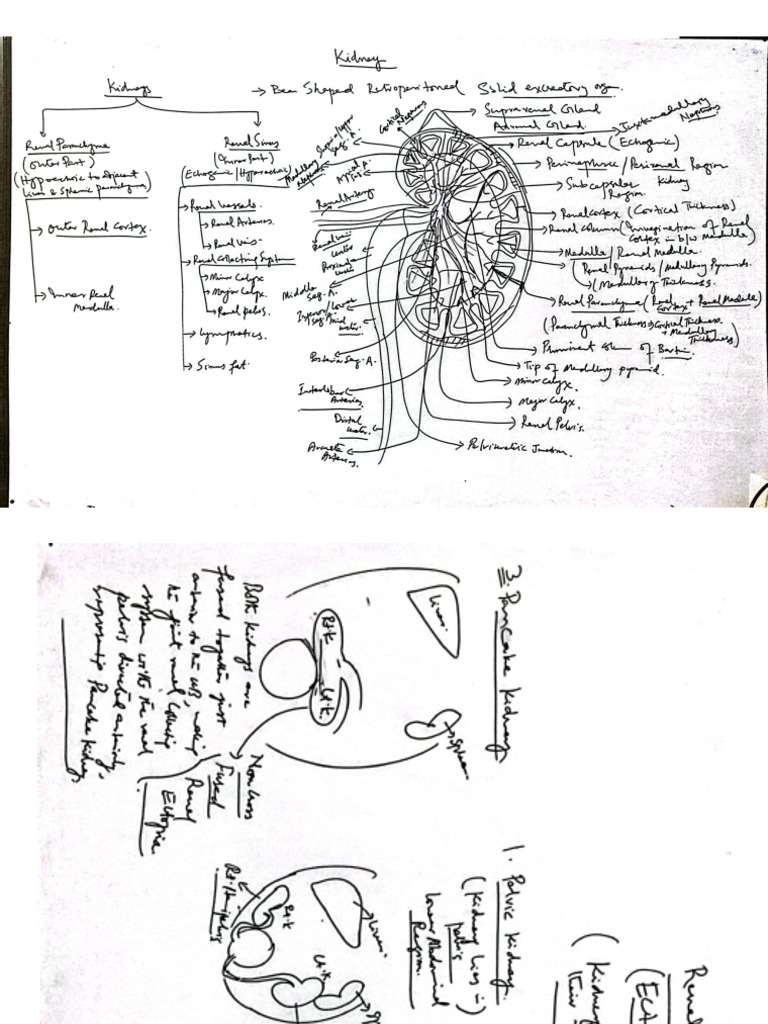 Kidney
Kidneys
→ Bean Shaped Retroperitoned Solid excretory organ.
Renal Parenchyma
(Outer Part)
(Hypoechoic to Adjacent
Liver & Splenic parenchyma)
→ Outer Renal Cortex.
→ Inner Renal
Medulla.
Renal Sinus
(Inner Part)
(Echogenic / Hyperechoic)
→ Renal Vessels.
→ Renal Arteries.
→ Renal Veins.
→ Renal Collecting System
→ Minor Calyx
→ Major Calyx.
→ Renal Pelvis.
→ Lymphatics.
→ Sinus fat.
Cortical
Nephrons
Medullary
Nephrons
Apical A.
Renal Artery
Renal vein
Ureter
Proximal
Ureter
Middle
Seg. A.
Inferior/Lower
Seg. A.
Mid
Ureter.
Posterior Seg. A.
Interlobar
Arteries
Distal
Ureter.
Arcuate
Arteries.
Suprarenal Gland
Adrenal Gland.
Juxtamedullary
Nephrons
Renal Capsule (Echogenic)
Perinephric / Perirenal Region
Subcapsular Kidney
Region
Renal Cortex (Cortical Thickness)
Renal Column (Invagination of Renal
Cortex in b/w Medulla)
Medulla / Renal Medulla.
(Renal Pyramids / Medullary Pyramids.
(Medullary Thickness.
Renal Parenchyma (Renal Cortex + Renal Medulla)
(Parenchymal Thickness → Cortical Thickness
+ Medullary
Thickness)
Prominent Column of Bertin.
Tip of Medullary pyramid.
Minor Calyx.
Major Calyx.
Renal Pelvis.
Pelviureteric Junction.
3. Pancake Kidney
Liver.
Spleen.
Rt. K
Lt. K
Non Cross
Fused
Renal
Ectopia
Both kidneys are
fused together just
anterior to the
the joint renal collecting
system with the renal
pelvis directed anteriorly,
represents Pancake Kidney
1. Pelvic Kidney.
(Kidney Lies in
pelvis
Lower Abdominal
Region.
Liver.
Rt. K
Lt. K
Renal
(ECT
(Kidney
their